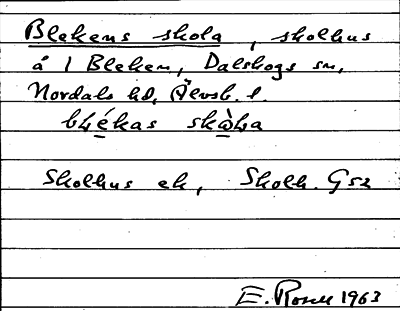 Blekens skola, skolhus
å 1 Bleken, Dalskogs sn,
Nordals hd, Älvsb. l.
blékas skòla
Skolhus ek, Skolh. G52
E. Rosell 1963